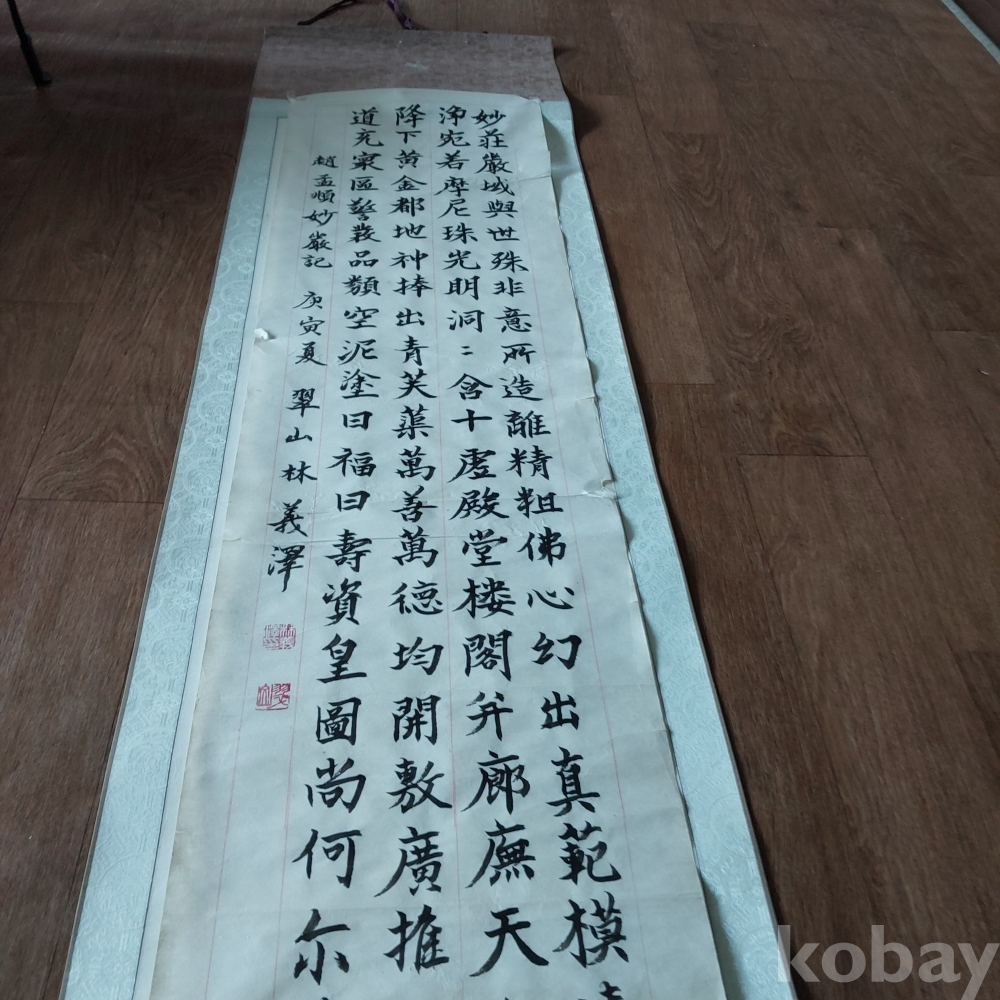 妙莊嚴域與世殊非意所造離精粗佛心幻出真範模
淨宛若摩尼珠光明洞〻含十虛殿堂楼閣并廊廡天
降下黄金都地神捧出青芙蕖萬善萬德均開敷廣推
道充寰區警發品類空泥塗曰福曰壽資皇圖尚何尓
趙孟順妙嚴記 庚寅夏 翠山 林義澤
kobay